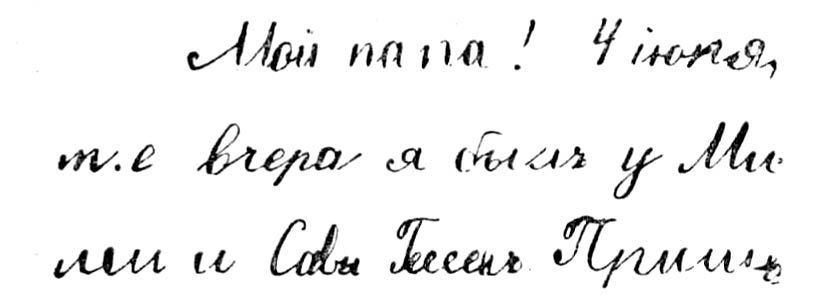 Мой папа! 4 іюня,
т.е вчера я былъ у Ми-
ми и Савы Гессенъ